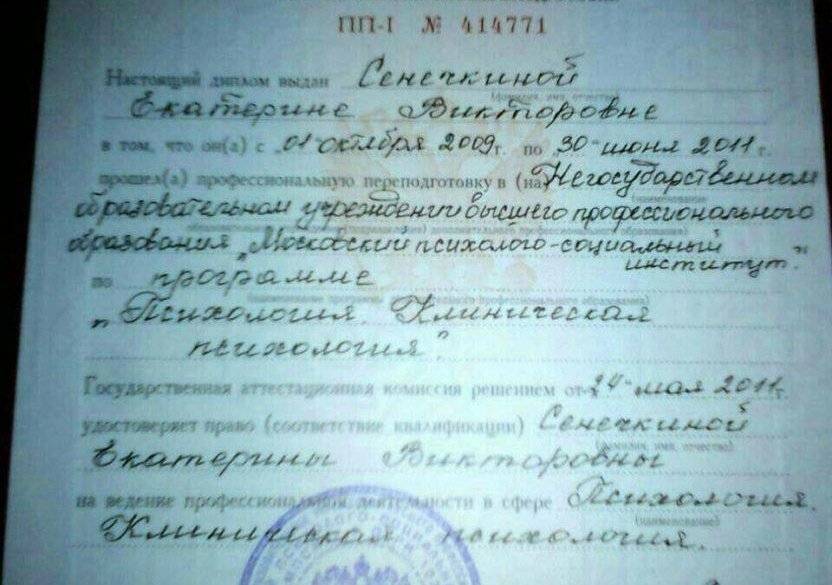 ПП-I № 414771
Настоящий диплом выдан Сенечкиной
(фамилия, имя, отчество)
Екатерине Викторовне
в том, что он(а) с „01" октября 2009г. по „30" июня 2011г.
прошел(а) профессиональную переподготовку в (на) Негосударственном
(наименование
образовательном учреждении высшего профессионального
образования „Московский психолого-социальный
институт."
по программе
„Психология. Клиническая
психология".
Государственная аттестационная комиссия решением от „24" мая 2011г.
удостоверяет право (соответствие квалификации) Сенечкиной
(фамилия, имя, отчество)
Екатерины Викторовны
на ведение профессиональной деятельности в сфере Психология.
(наименование)
Клиническая психология.